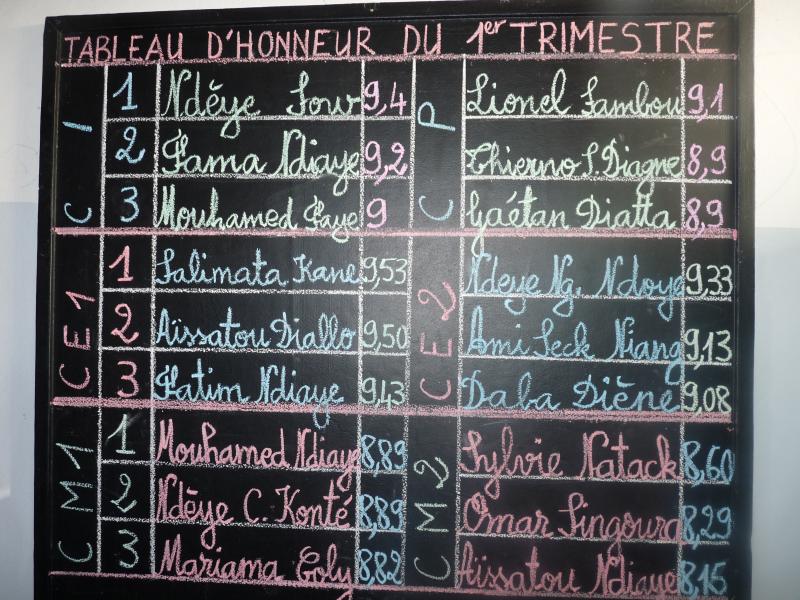 TABLEAU D'HONNEUR DU 1er TRIMESTRE
CI
1 Ndèye Sow 9,4
2 Fama Ndiaye 9,2
3 Mouhamed Faye 9
CP
Lionel Sambou 9,1
Thierno S Diagne 8,9
Gaétan Diatta 8,9
CE1
1 Salimata Kane 9,53
2 Aïssatou Diallo 9,50
3 Fatim Ndiaye 9,43
CE2
Ndeye Ng. Ndoye 9,33
Ami Seck Niang 9,13
Daba Diène 9,08
CM1
1 Mouhamed Ndiaye 8,89
2 Ndèye C. Konté 8,89
3 Mariama Coly 8,82
CM2
Sylvie Natack 8,60
Omar Singoura 8,29
Aïssatou Ndiaye 8,15